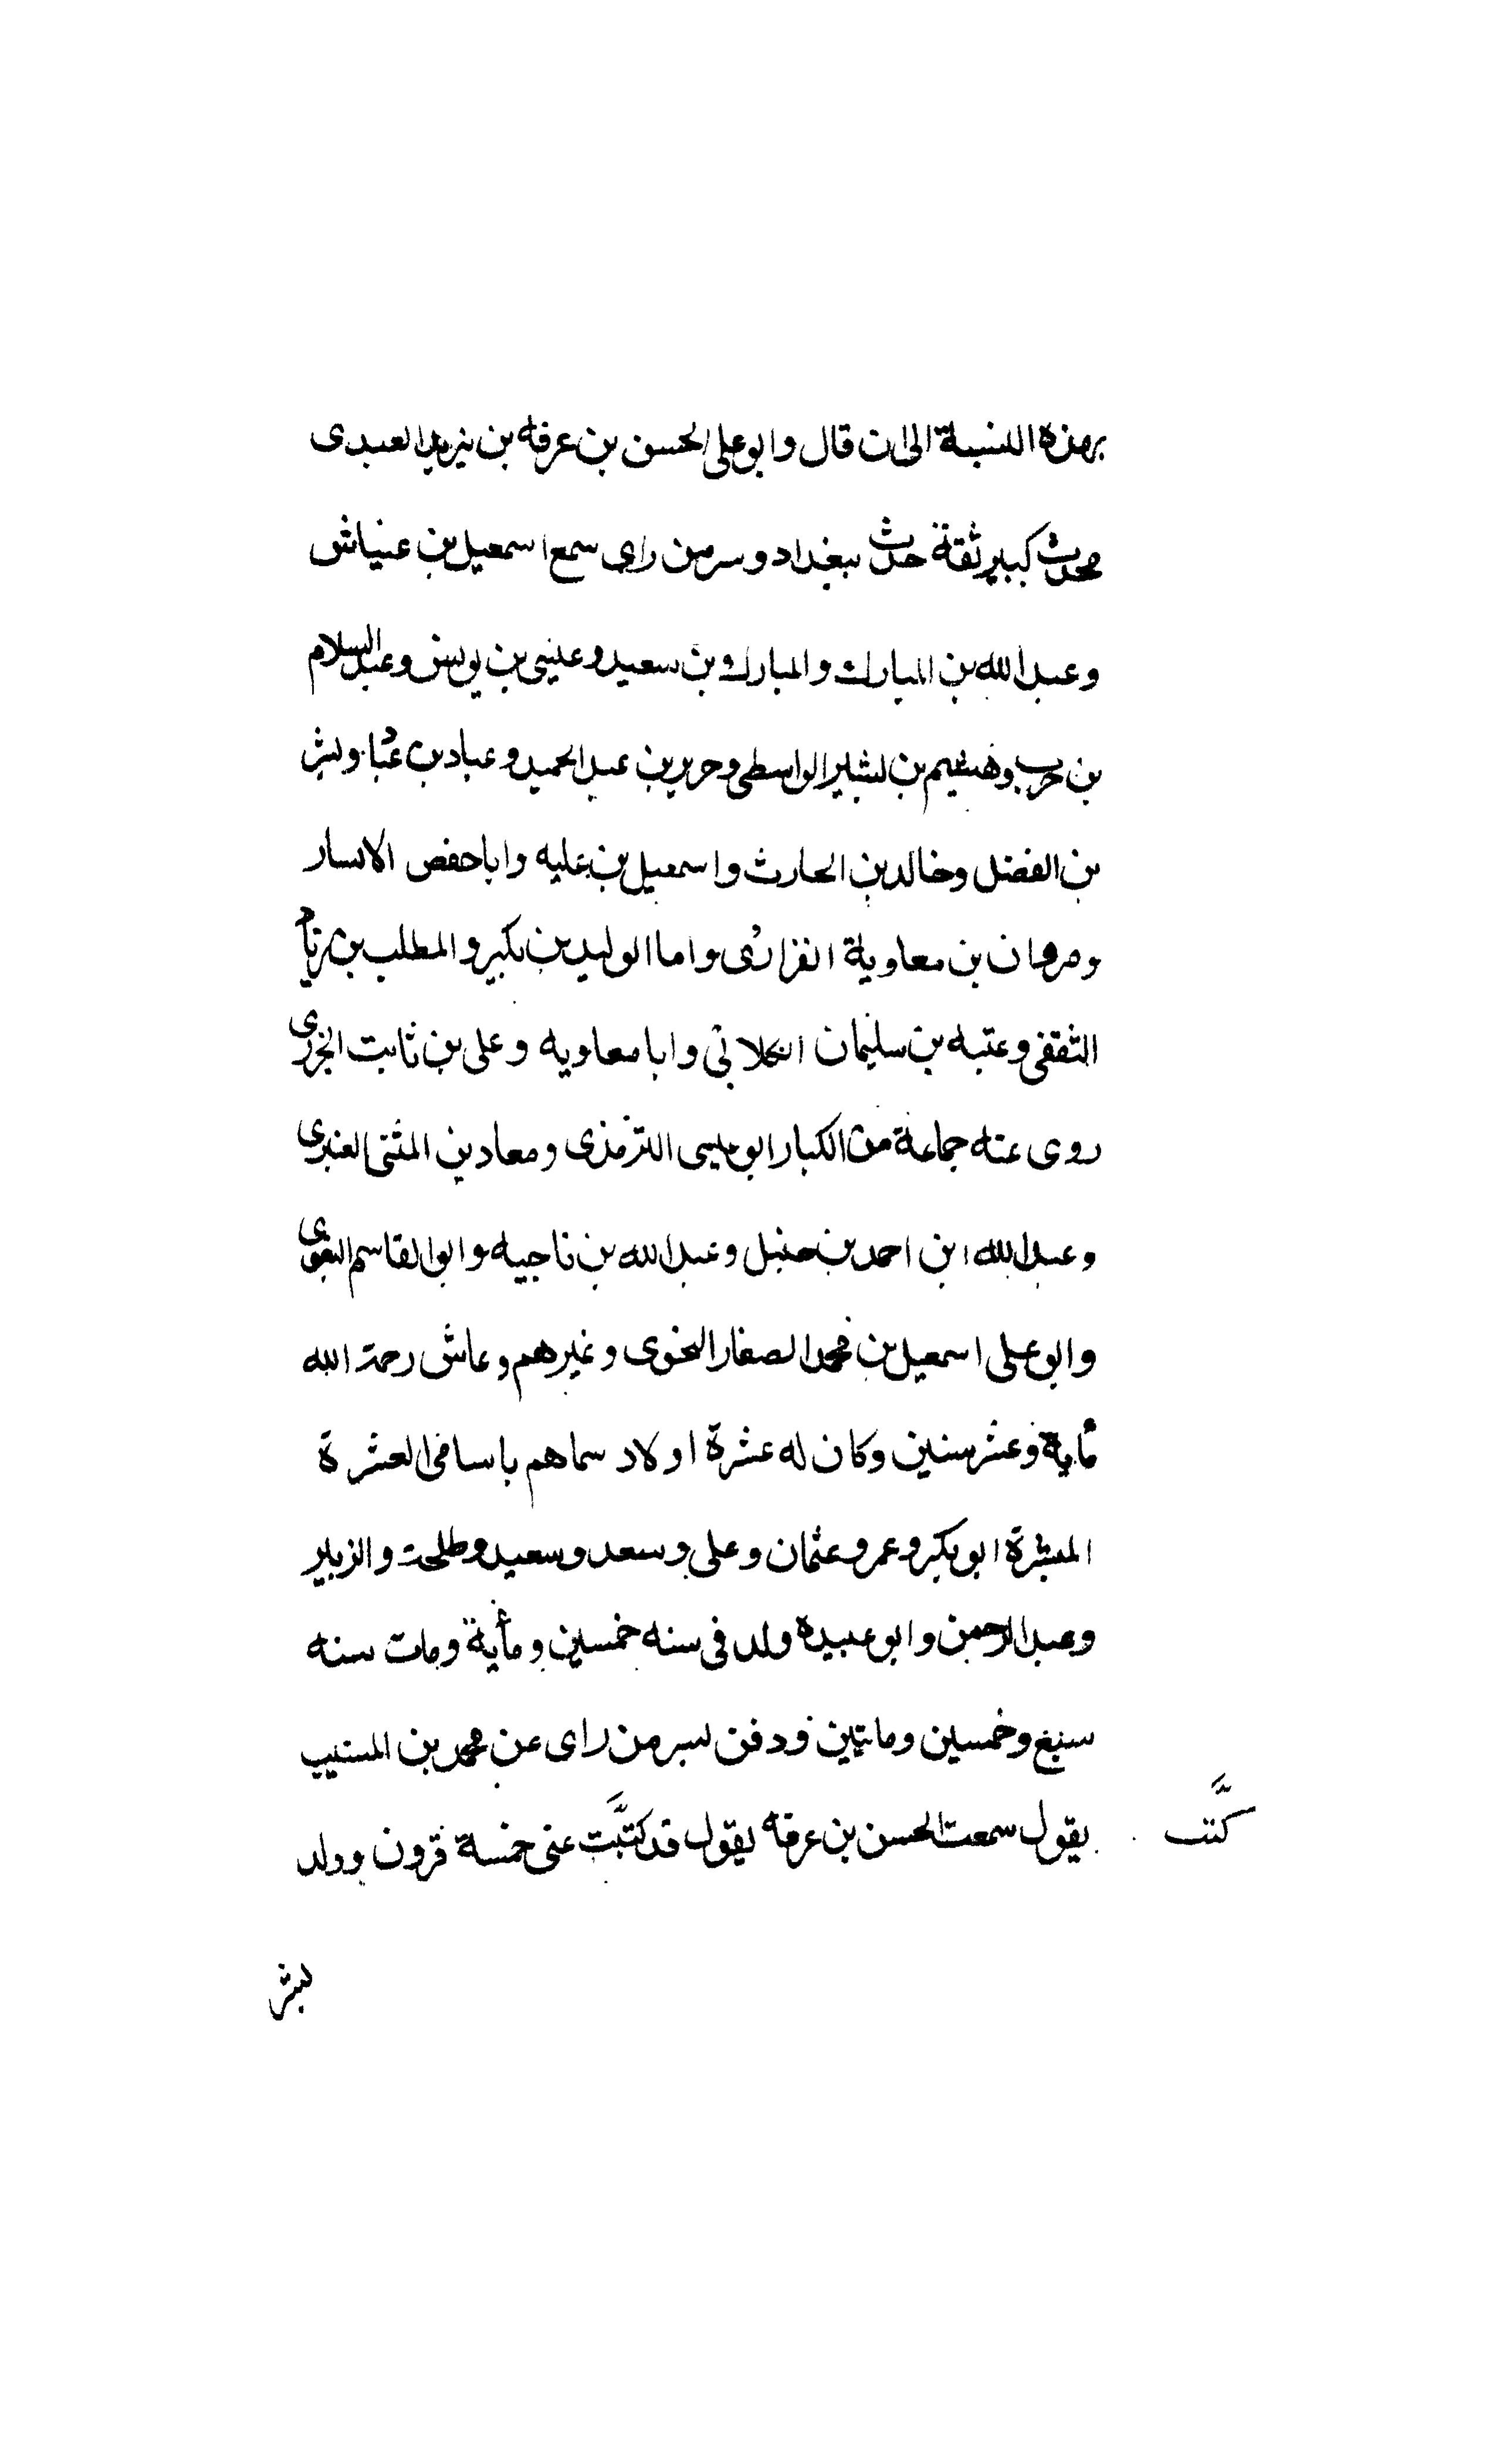 بهذه النسبة الى ان قال وابو على الحسن بن عرفه بن يزيد العبدى
محدث كبير ثقة حدث ببغداد وسر من راى سمع اسمعيل بن عياش
وعبد الله بن المبارك والمبارك بن سعيد وعيسى بن يونس وعبد السلام
بن حرب وهشيم بن بشير الواسطى وجرير بن عبد الحميد وعباد بن عباد وبشر
بن الفضل وخالد بن الحارث واسمعيل بن عليه وابا حفص الابار
ومروان بن معاوية الفزارى واما الوليد بن بكير والمطلب بن زياد
الثقفى وعتبه بن سليمان الكلابى وابا معاويه وعلى بن ثابت الجزرى
روى عنه جماعة من الكبار ابو عيسى الترمذى ومعاد بن المثنى العنبرى
وعبد الله ابن احمد بن حنبل وعبد الله بن ناجيه وابو القاسم البغوى
وابو على اسمعيل بن محمد الصفار النحوى وغيرهم وعاش رحمة الله
مأية وعشر سنين وكان له عشرة اولاد سماهم باسامى العشرة
المبشرة ابو بكر وعمر وعثمان وعلى وسعد وسعيد وطلحة والزبير
وعبد الرحمن وابو عبيده ولد فى سنه خمسين ومأية ومات سنه
سبع وخمسين وماتيين ودفن لسر من راى عن محمد بن المسيب
يقول سمعت الحسن بن عرفه يقول قد كتبت عنى خمسة قرون وولد
كتب
بشر